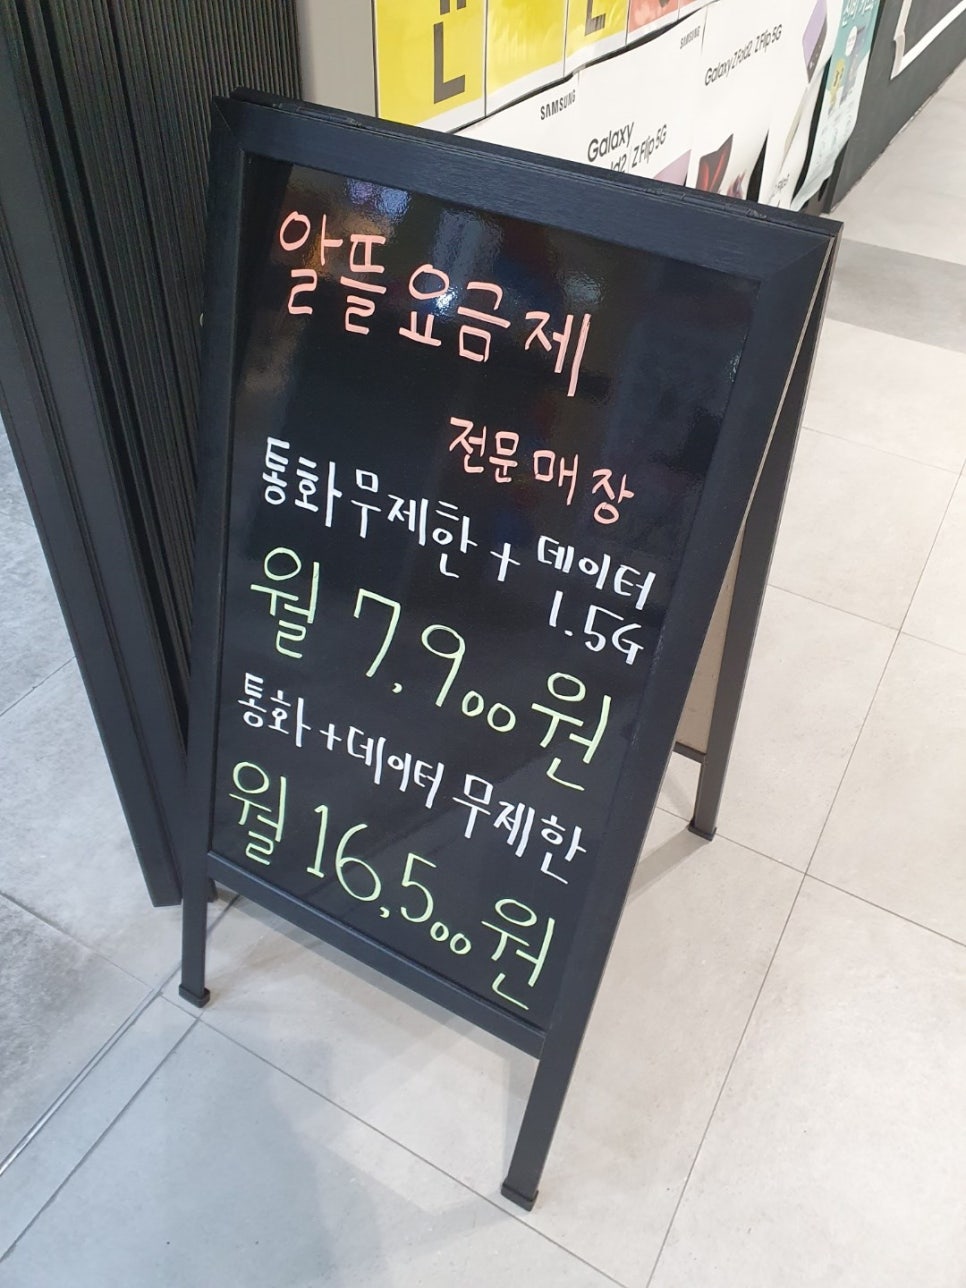 SAMSUNG
Galaxy Z Fold2 Z Flip 5G
SAMSUNG
Galaxy
Z Flip 5G
알뜰요금제
전문매장
통화무제한 + 데이터
1.5G
월 7,900원
통화+데이터 무제한
월 16,500원